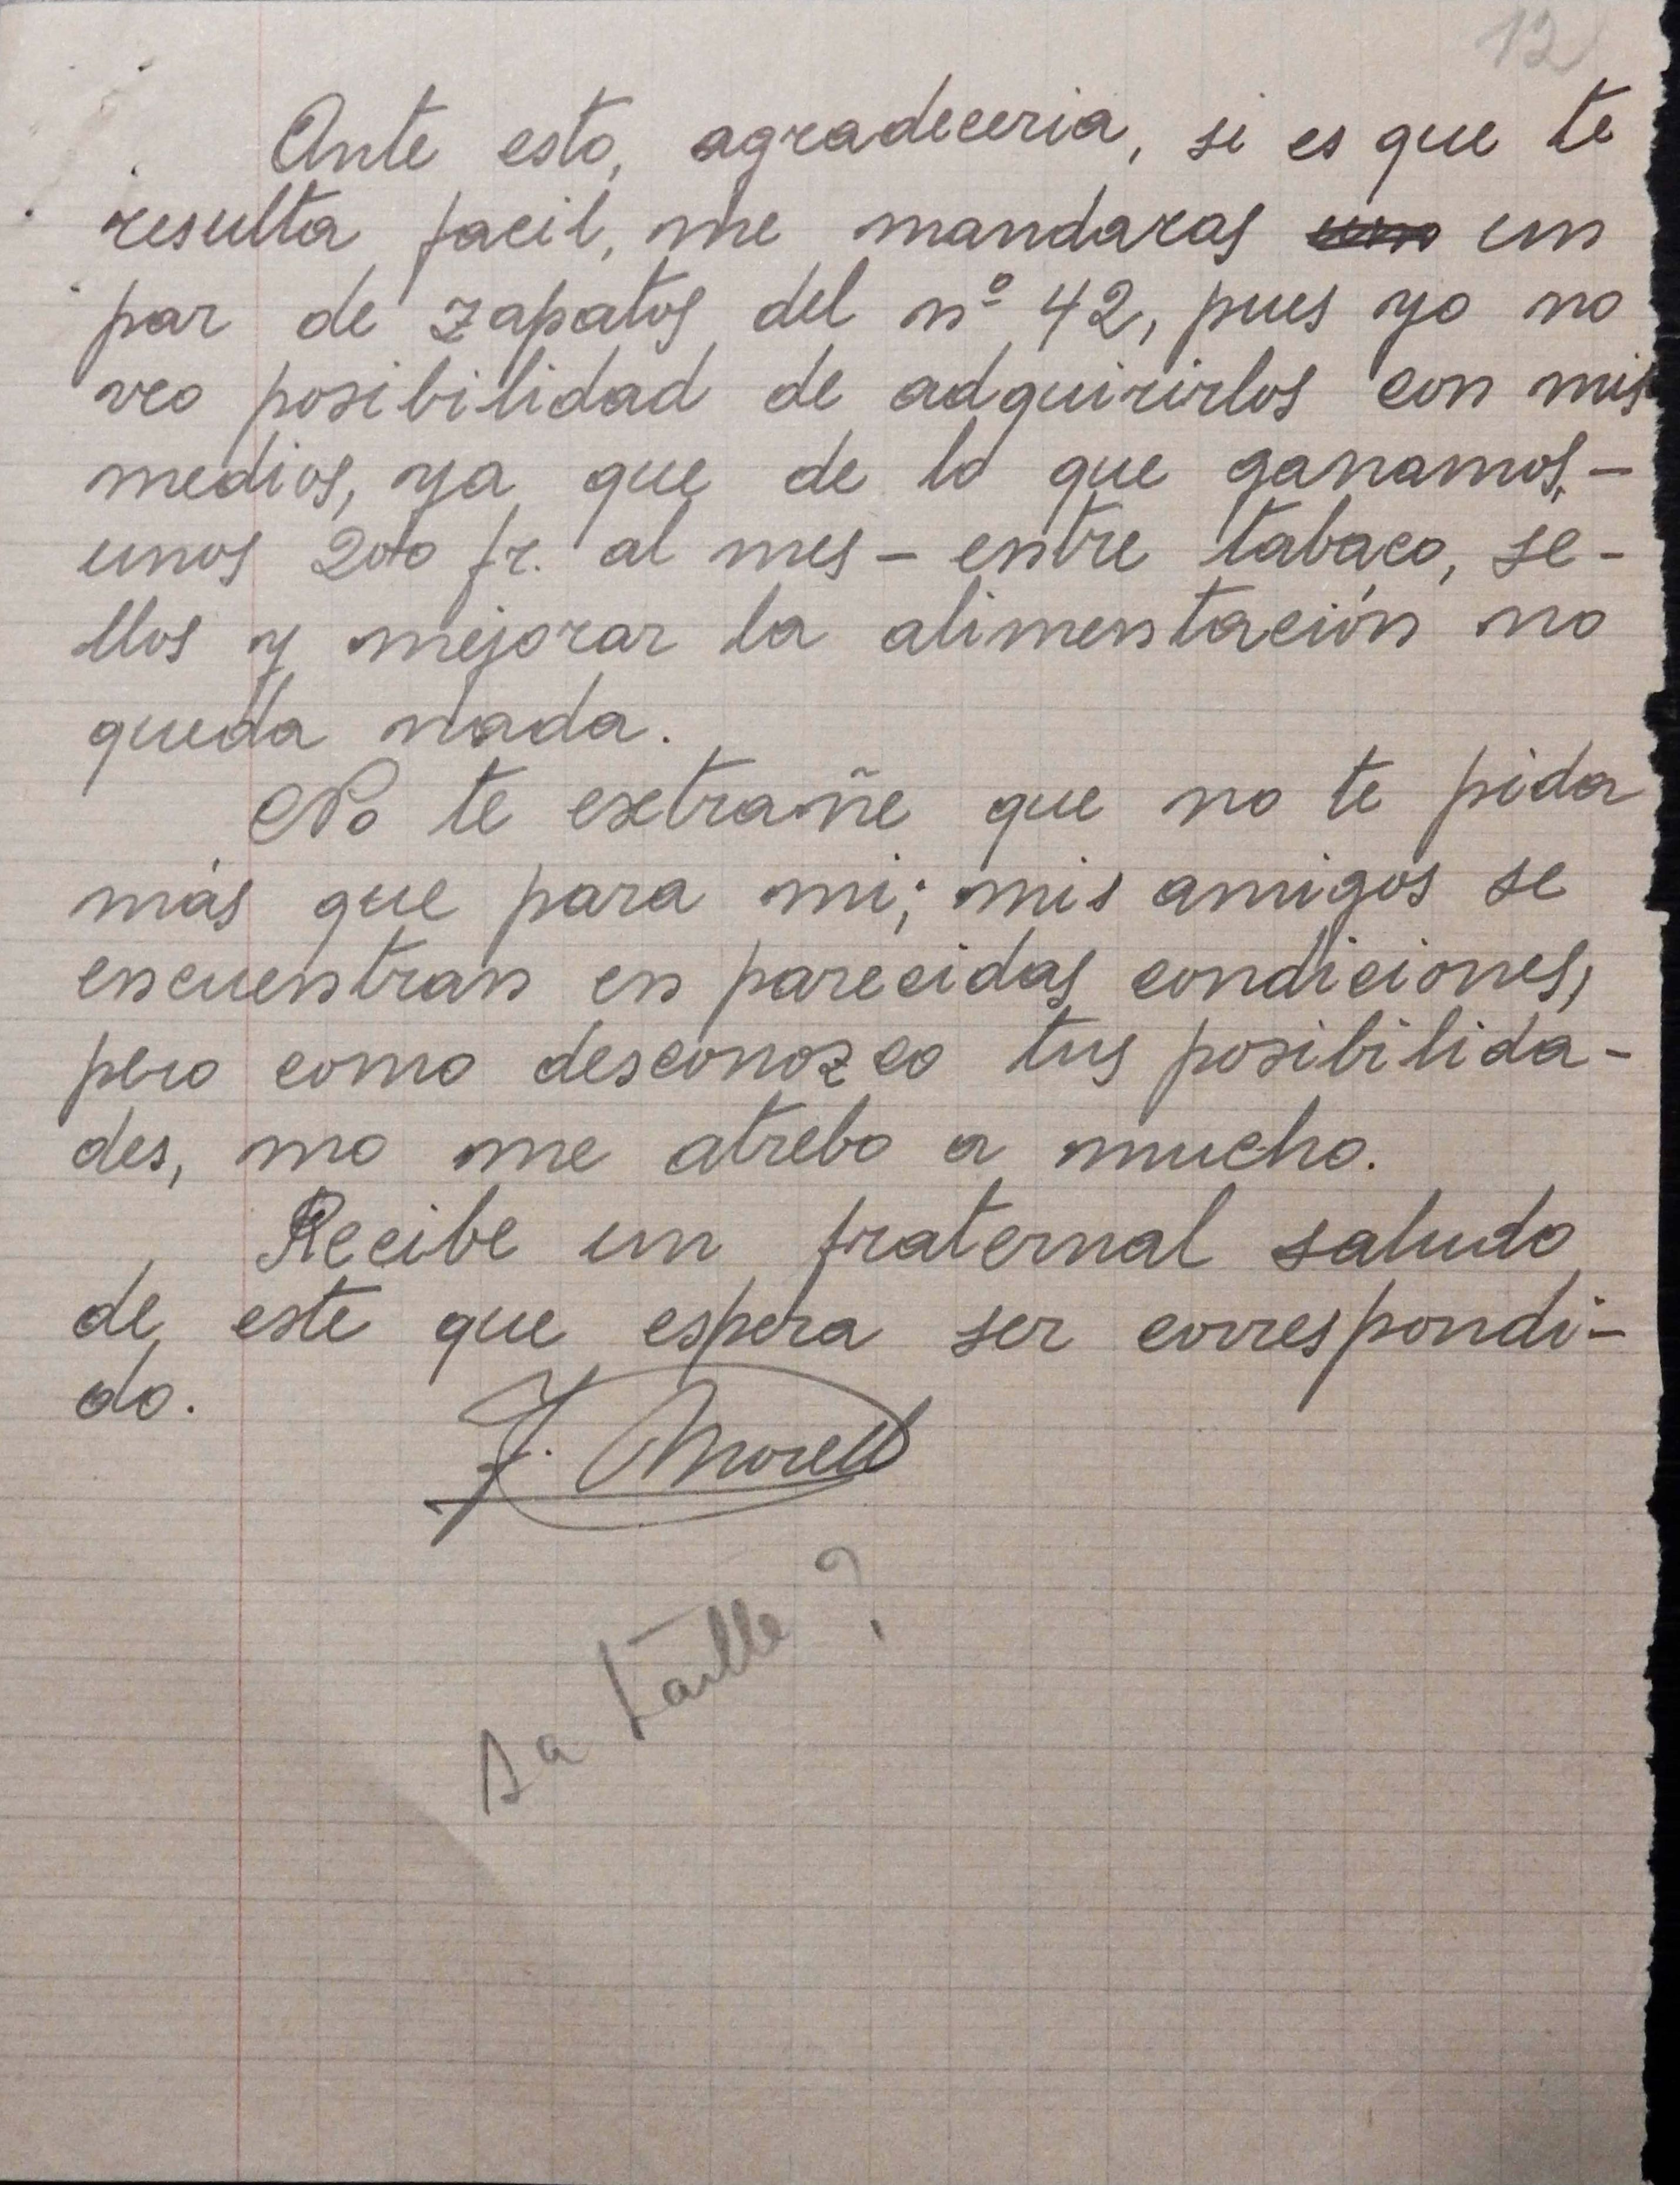 12
Ante esto, agradeceria, si es que te
resulta facil, me mandaras un
par de zapatos del nº 42, pues yo no
veo posibilidad de adquirirlos con mis
medios, ya que de lo que ganamos, -
unos 200 fr. al mes - entre tabaco, se-
llos y mejorar la alimentación no
queda nada.
No te extrañe que no te pida
más que para mi; mis amigos se
encuentran en parecidas condiciones,
pero como desconozco tus posibilida-
des, no me atrebo a mucho.
Recibe un fraternal saludo
de este que espera ser correspondi-
do.
J. Morell
sa taille ?